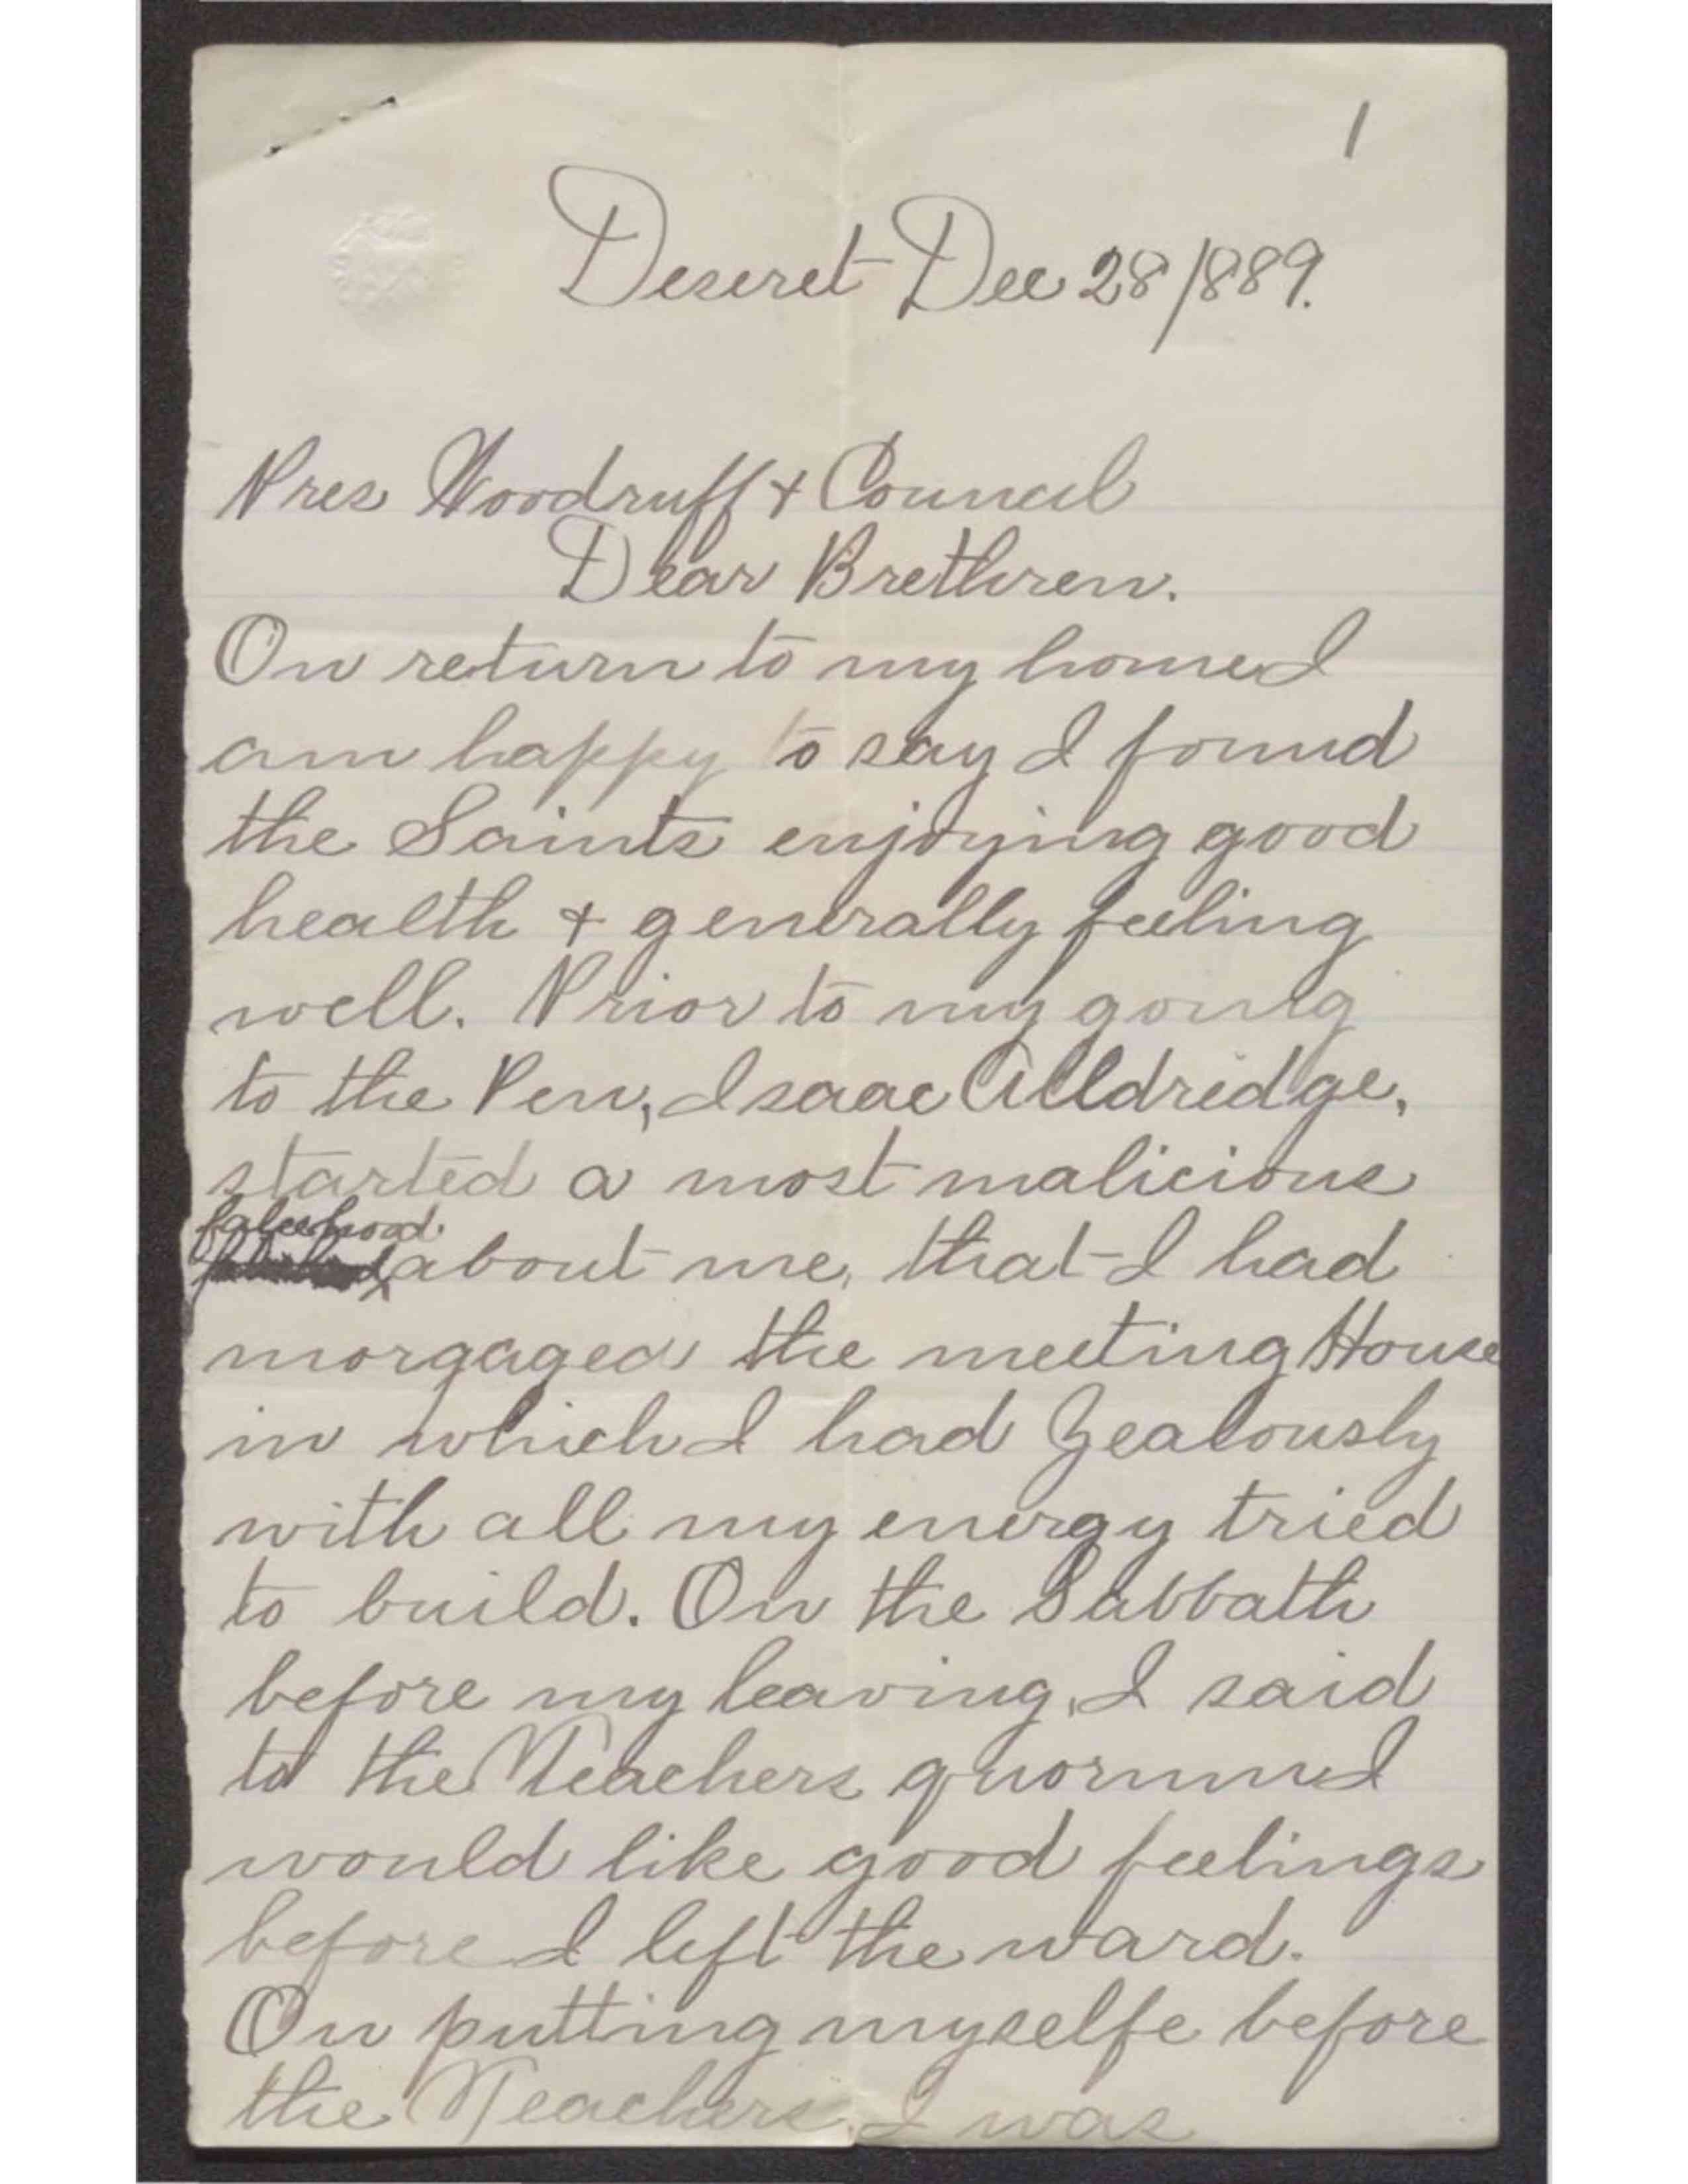 1
Deseret Dec 28/1889.
Pres Woodruff + Council
Dear Brethren.
On return to my home I
am happy to say I found
the Saints enjoying good
health + generally feeling
well. Prior to my going
to the Pen, Isaac Alldredge,
started a most malicious
falsehood
about me, that I had
morgaged the meeting House
in which I had Zealously
with all my energy tried
to build. On the Sabbath
before my leaving, I said
to the Teachers quorum I
would like good feelings
before I left the ward.
On putting myselfe before
the Teachers, I was